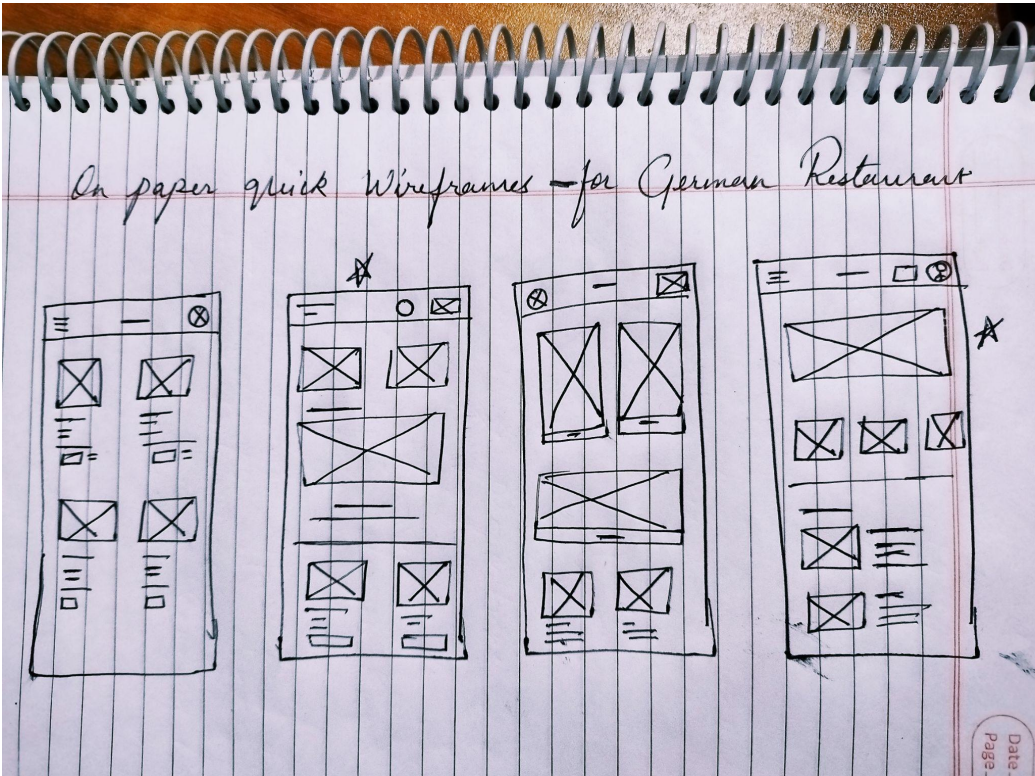 On paper quick Wireframes - for German Restaurant
Date
Page